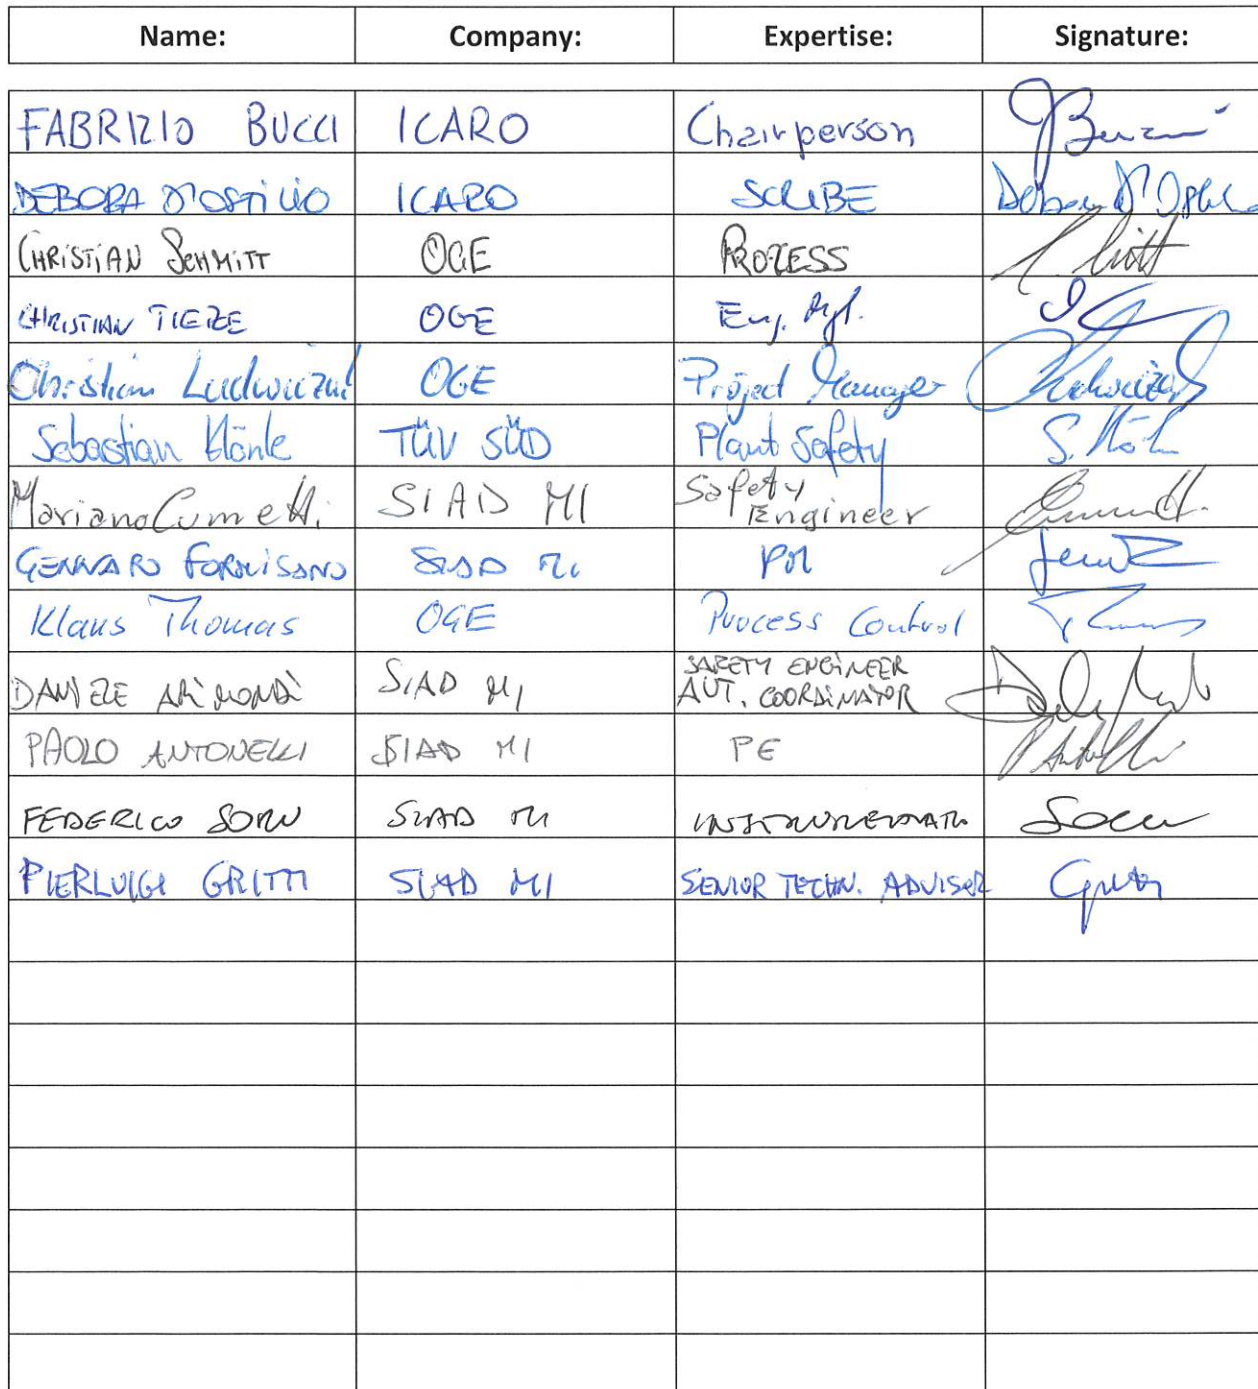 Name: Company: Expertise: Signature:
FABRIZIO BUCCI ICARO Chairperson
DEBORA D'OSTILIO ICARO SCRIBE
CHRISTIAN SCHMITT OGE PROZESS
CHRISTIAN TIETZE OGE Eng. Mgt.
Christian OGE Project Manager
Sebastian TÜV SÜD Plant Safety
Mariano Cumetti SIAD MI Safety
Engineer
GENNARO FORMISANO SIAD MI PM
Klaus Thomas OGE Process Control
DANIELE ARIMONDI SIAD MI SAFETY ENGINEER
AUT. COORDINATOR
PAOLO ANTONELLI SIAD MI PE
FEDERICO SIAD MI
PIERLUIGI GRITTI SIAD MI SENIOR TECHN. ADVISER